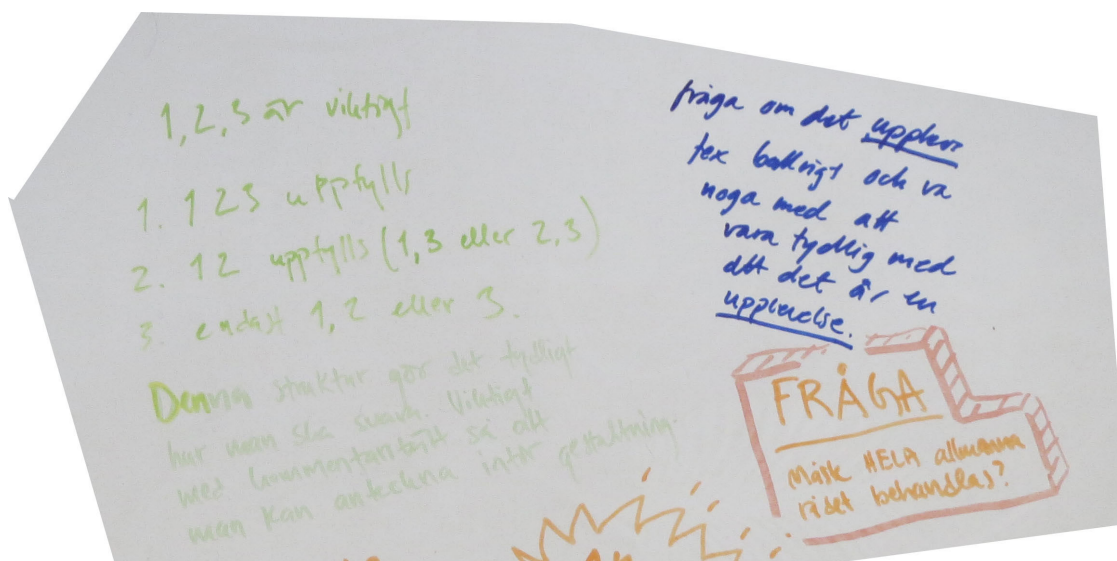 1,2,3 är viktigt
1. 123 uppfylls
2. 12 uppfylls (1,3 eller 2,3)
3. endast 1, 2 eller 3.
Denna struktur gör det tydligt
hur man ska svara. Viktigt
med kommentarsfält så att
man kan anteckna inför gestaltning.
fråga om det upplevs
tex bullrigt och va
noga med att
vara tydlig med
att det är en
upplevelse.
FRÅGA
Måste HELA allmänna
rådet behandlas?